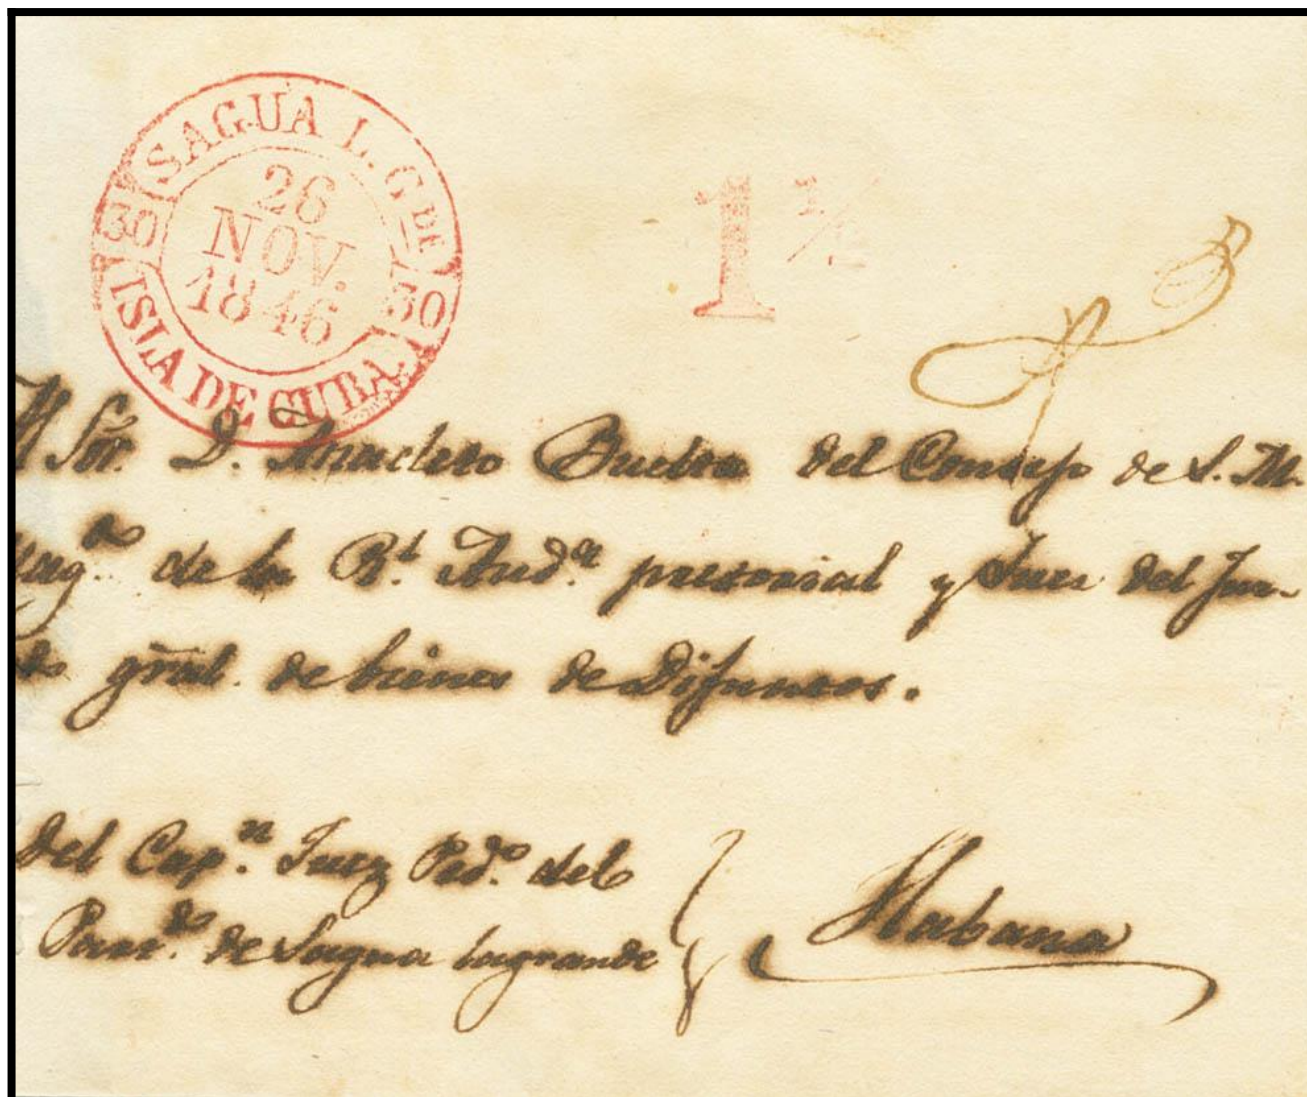 SAGUA L. G DE
30
26
NOV.
1846
30
ISLA DE CUBA.
1 1/2
Sor. D. Anacleto Buelta del Consejo de S. M.
de la Rl. Auda. pretorial y Juez del Juz-
gral. de bienes de Difuntos.
Del Capn. Juez Pedo. del
Parto. de Sagua lagrande
Habana